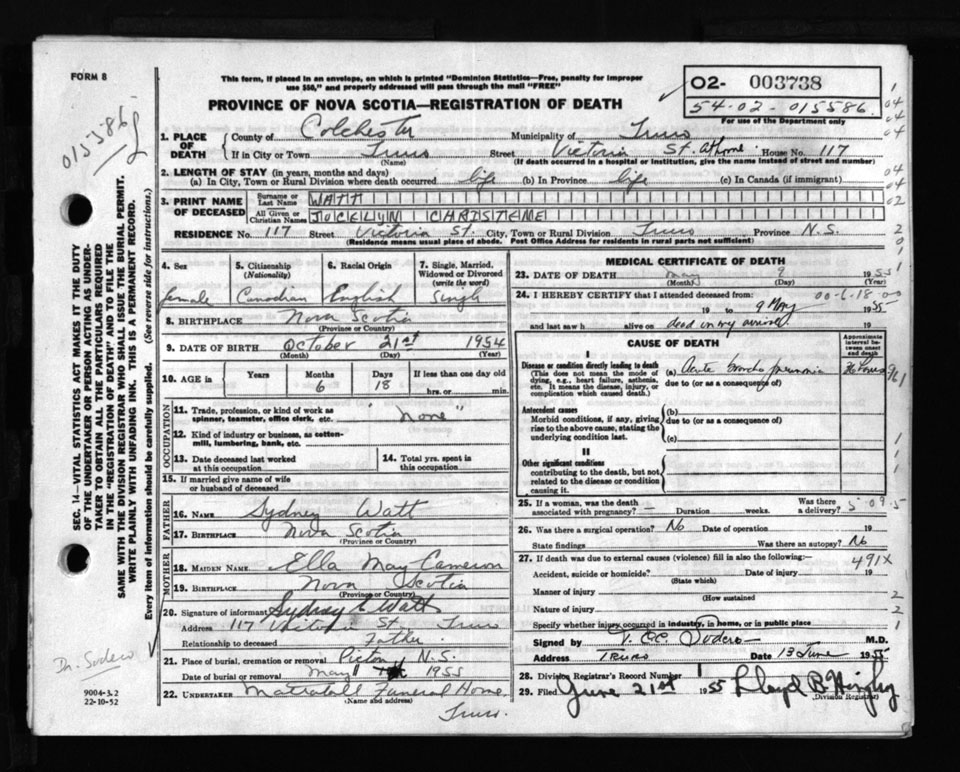 FORM 8
This form, if placed in an envelope, on which is printed "Dominion Statistics—Free, penalty for improper
use $50," and properly addressed will pass through the mail "FREE"
PROVINCE OF NOVA SCOTIA—REGISTRATION OF DEATH
02- 003738
54-02-015586
For use of the Department only
015586
1. PLACE OF DEATH
County of Colchester Municipality of Truro
If in City or Town Truro Street Victoria St. At home House No. 117
(Name) (If death occurred in a hospital or institution, give the name instead of street and number)
2. LENGTH OF STAY (in years, months and days)
(a) In City, Town or Rural Division where death occurred life (b) In Province life (c) In Canada (if immigrant)
3. PRINT NAME OF DECEASED
Surname or Last Name WATT
All Given or Christian Names JOCELYN CHRISTENE
RESIDENCE No. 117 Street Victoria St. City, Town or Rural Division Truro Province N.S.
(Residence means usual place of abode. Post Office Address for residents in rural parts not sufficient)
4. Sex female
5. Citizenship (Nationality) Canadian
6. Racial Origin English
7. Single, Married, Widowed or Divorced (write the word) Single
8. BIRTHPLACE Nova Scotia
(Province or Country)
9. DATE OF BIRTH October 21st 1954
(Month) (Day) (Year)
10. AGE in Years Months 6 Days 18 If less than one day old
hrs. or min.
OCCUPATION
11. Trade, profession, or kind of work as
spinner, teamster, office clerk, etc. "None"
12. Kind of industry or business, as cotten-
mill, lumbering, bank, etc.
13. Date deceased last worked
at this occupation
14. Total yrs. spent in
this occupation
15. If married give name of wife
or husband of deceased
FATHER
16. NAME Sydney Watt
17. BIRTHPLACE Nova Scotia
(Province or Country)
MOTHER
18. MAIDEN NAME Ella May Cameron
19. BIRTHPLACE Nova Scotia
(Province or Country)
20. Signature of informant Sydney E Watt
Address 117 Victoria St. Truro
Relationship to deceased Father
21. Place of burial, cremation or removal Pictou N.S.
Date of burial or removal May 1955
22. UNDERTAKER Mattatall Funeral Home
(Name and address)
Truro.
MEDICAL CERTIFICATE OF DEATH
23. DATE OF DEATH May 9 1955
(Month) (Day) (Year)
24. I HEREBY CERTIFY that I attended deceased from 00-6-18-00
19 to 9 May 1955
and last saw h alive on dead on my arrival 19
CAUSE OF DEATH
Approximate interval between onset and death
I
Disease or condition directly leading to death
(This does not mean the mode of dying, e.g., heart failure, asthenia, etc. It means the disease, injury, or complication which caused death.)
(a) Acute broncho pneumonia 36 hours
due to (or as a consequence of)
Antecedent causes
Morbid conditions, if any, giving rise to the above cause, stating the underlying condition last.
(b)
due to (or as a consequence of)
(c)
II
Other significant conditions
contributing to the death, but not related to the disease or condition causing it.
25. If a woman, was the death
associated with pregnancy? — Duration weeks. Was there a delivery?
26. Was there a surgical operation? No Date of operation 19
State findings Was there an autopsy? No
27. If death was due to external causes (violence) fill in also the following:— 491X
Accident, suicide or homicide? Date of injury 19
(State which)
Manner of injury
(How sustained
Nature of injury
Specify whether injury occurred in industry, in home, or in public place
Signed by T. C.C. Sodero M.D.
Address Truro Date 13 June 1955
28. Division Registrar's Record Number
29. Filed June 21st 1955
Division Registrar
SEC. 14—VITAL STATISTICS ACT MAKES IT THE DUTY
OF THE UNDERTAKER OR PERSON ACTING AS UNDER-
TAKER TO OBTAIN ALL THE PARTICULARS REQUIRED
IN THE "REGISTRATION OF DEATH" AND TO FILE THE
SAME WITH THE DIVISION REGISTRAR WHO SHALL ISSUE THE BURIAL PERMIT.
WRITE PLAINLY WITH UNFADING INK. THIS IS A PERMANENT RECORD.
Every item of information should be carefully supplied. (See reverse side for instructions.)
Dr. Sodero
9004-3.2
22-10-52